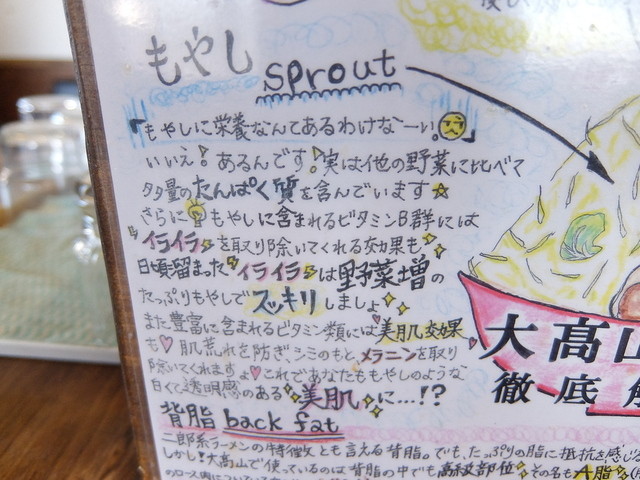 もやし sprout
「もやしに栄養なんてあるわけな〜い」
いいえ!あるんです!実は他の野菜に比べて
多量のたんぱく質を含んでいます☆
さらに もやしに含まれるビタミンB群には
"イライラ"を取り除いてくれる効果も
日頃溜まった"イライラ"は野菜増の
たっぷりもやしでスッキリしましょ
また豊富に含まれるビタミン類には美肌効果
も♡肌荒れを防ぎ、シミのもと、メラニンを取り
除いてくれますょ♡これであなたももやしのような
白くて透明感のある美肌に…!?
大髙山
徹底
背脂 back fat
二郎系ラーメンの特徴とも言える背脂。でも、たっぷりの脂に抵抗を感じる
しかし!大髙山で使っているのは背脂の中でも高級部位 その名もA脂